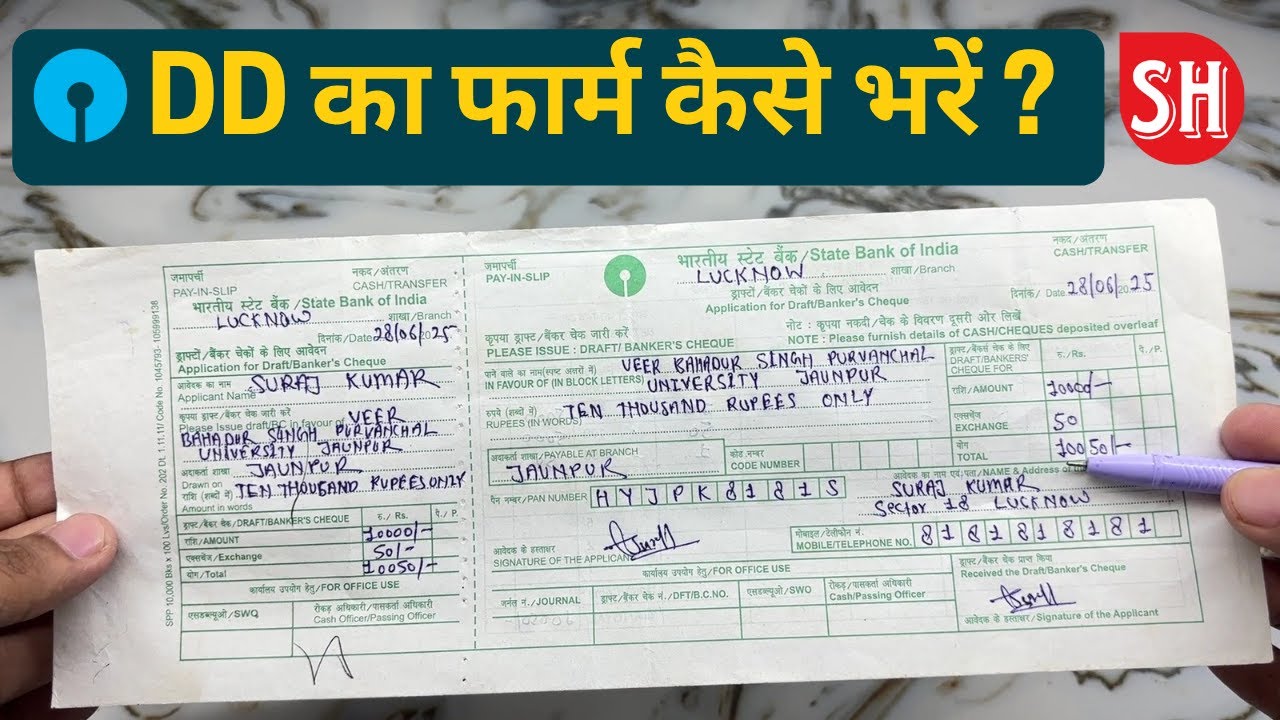 DD का फार्म कैसे भरें ?
SH
जमापर्ची
PAY-IN-SLIP
नकद/अंतरण
CASH/TRANSFER
भारतीय स्टेट बैंक/State Bank of India
LUCKNOW शाखा/Branch
दिनांक/Date 28/06/2025
ड्राफ्टों/बैंकर चेकों के लिए आवेदन
Application for Draft/Banker's Cheque
आवेदक का नाम
Applicant Name SURAJ KUMAR
कृपया ड्राफ्ट/बैंकर चेक जारी करें
Please issue draft/BC in favour VEER
BAHADUR SINGH PURVANCHAL
UNIVERSITY JAUNPUR
अदाकर्ता शाखा
Drawn on JAUNPUR
राशि (शब्दों में)
Amount in words TEN THOUSAND RUPEES ONLY
ड्राफ्ट/बैंकर चेक/DRAFT/BANKER'S CHEQUE रु./Rs. पै./P.
राशि/AMOUNT 10000/-
एक्सचेंज/Exchange 50/-
योग/Total 10050/-
कार्यालय उपयोग हेतु/FOR OFFICE USE
एसडब्ल्यूओ/SWO
रोकड़ अधिकारी/पासकर्ता अधिकारी
Cash Officer/Passing Officer
जमापर्ची
PAY-IN-SLIP
भारतीय स्टेट बैंक/State Bank of India
LUCKNOW शाखा/Branch
नकद/अंतरण
CASH/TRANSFER
ड्राफ्टों/बैंकर चेकों के लिए आवेदन
Application for Draft/Banker's Cheque
दिनांक/ Date 28/06/2025
कृपया ड्राफ्ट/बैंकर चेक जारी करें
PLEASE ISSUE : DRAFT/ BANKER'S CHEQUE
नोट : कृपया नकदी/चेक के विवरण दूसरी ओर लिखें
NOTE : Please furnish details of CASH/CHEQUES deposited overleaf
पाने वाले का नाम(स्पष्ट अक्षरों में)
IN FAVOUR OF (IN BLOCK LETTERS) VEER BAHADUR SINGH PURVANCHAL
UNIVERSITY JAUNPUR
रुपये (शब्दों में)
RUPEES (IN WORDS) TEN THOUSAND RUPEES ONLY
DRAFT/BANKERS'
CHEQUE FOR
रु./Rs. पै./P.
राशि/AMOUNT 10000/-
एक्सचेंज
EXCHANGE 50
योग
TOTAL 10050/-
अदाकर्ता शाखा/PAYABLE AT BRANCH
JAUNPUR
कोड नम्बर
CODE NUMBER
पैन नम्बर/PAN NUMBER HYJPK8181S
आवेदक का नाम एवं पता/NAME & Address of
SURAJ KUMAR
Sector 18 LUCKNOW
आवेदक के हस्ताक्षर
SIGNATURE OF THE APPLICANT
मोबाइल/टेलीफोन नं.
MOBILE/TELEPHONE NO. 8181818181
कार्यालय उपयोग हेतु/FOR OFFICE USE
जर्नल नं./JOURNAL
ड्राफ्ट/बैंकर चेक नं./DFT/B.C.NO.
एसडब्ल्यूओ/SWO
रोकड़ अधिकारी/पासकर्ता अधिकारी
Cash/Passing Officer
ड्राफ्ट/बैंकर चेक प्राप्त किया
Received the Draft/Banker's Cheque
आवेदक के हस्ताक्षर/Signature of the Applicant